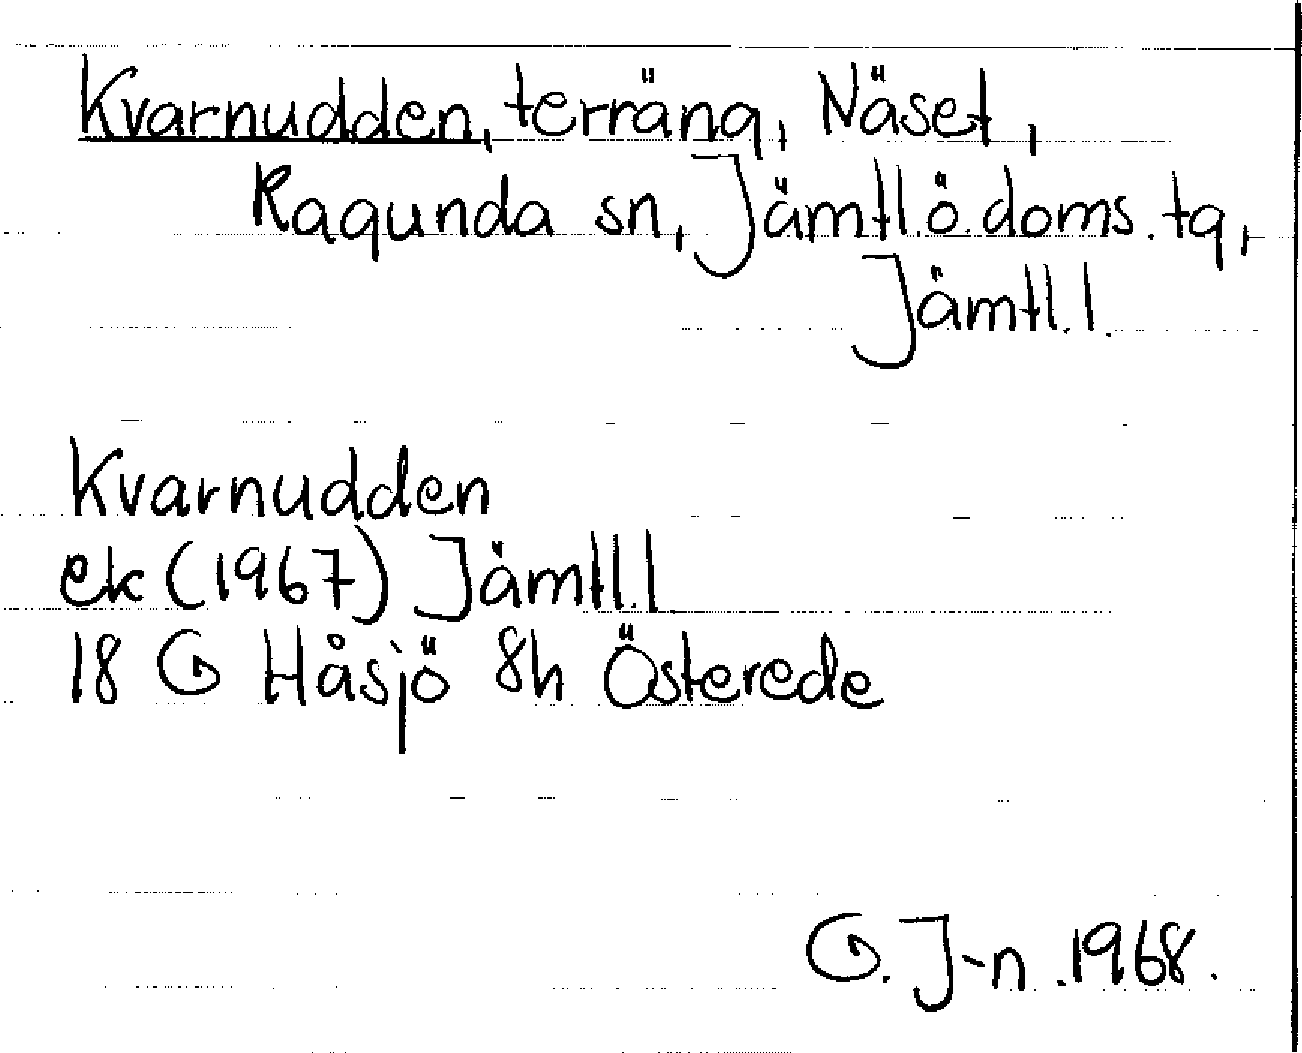 Kvarnudden, terräng, Näset,
Ragunda sn, Jämtl.ö.doms.tg,
Jämtl.l.
Kvarnudden
ek (1967) Jämtl.l
18 G Håsjö 8h Österede
G. J-n .1968.